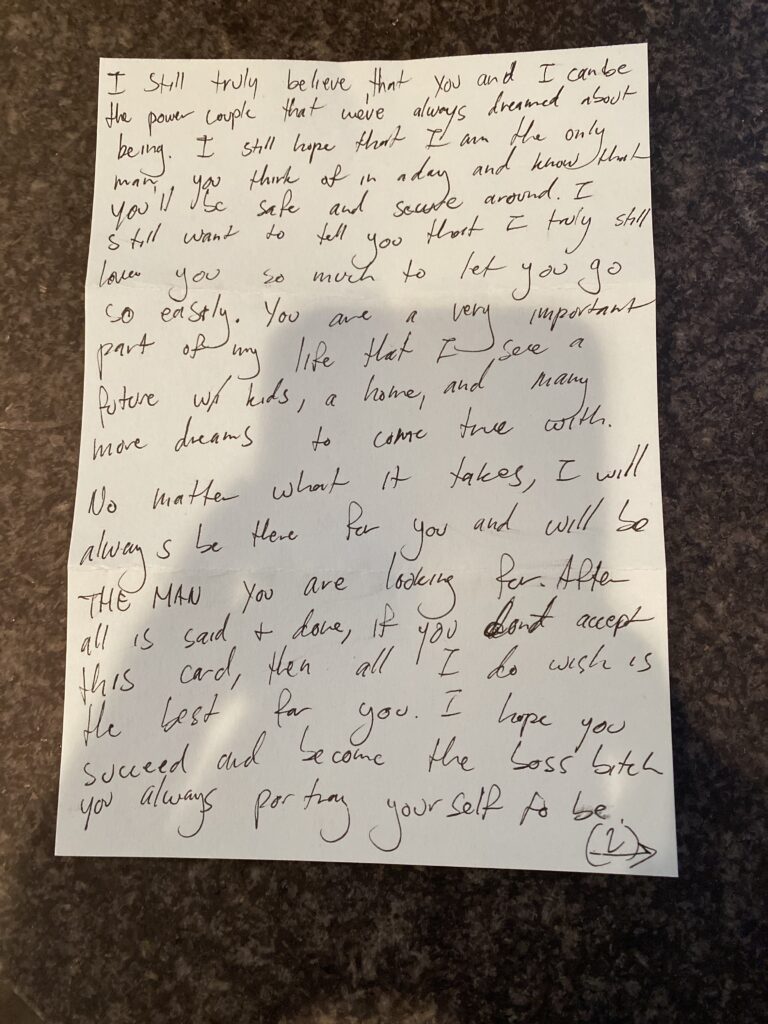 I still truly believe that you and I can be
the power couple that we've always dreamed about
being. I still hope that I am the only
man you think of in a day and know that
you'll be safe and secure around. I
still want to tell you that I truly still
love you so much to let you go
so easily. You are a very important
part of my life that I see a
future w/ kids, a home, and many
more dreams to come true with.
No matter what it takes, I will
always be there for you and will be
THE MAN you are looking for. After
all is said + done, if you dont accept
this card, then all I do wish is
the best for you. I hope you
succeed and become the boss bitch
you always portray yourself to be.
(2)